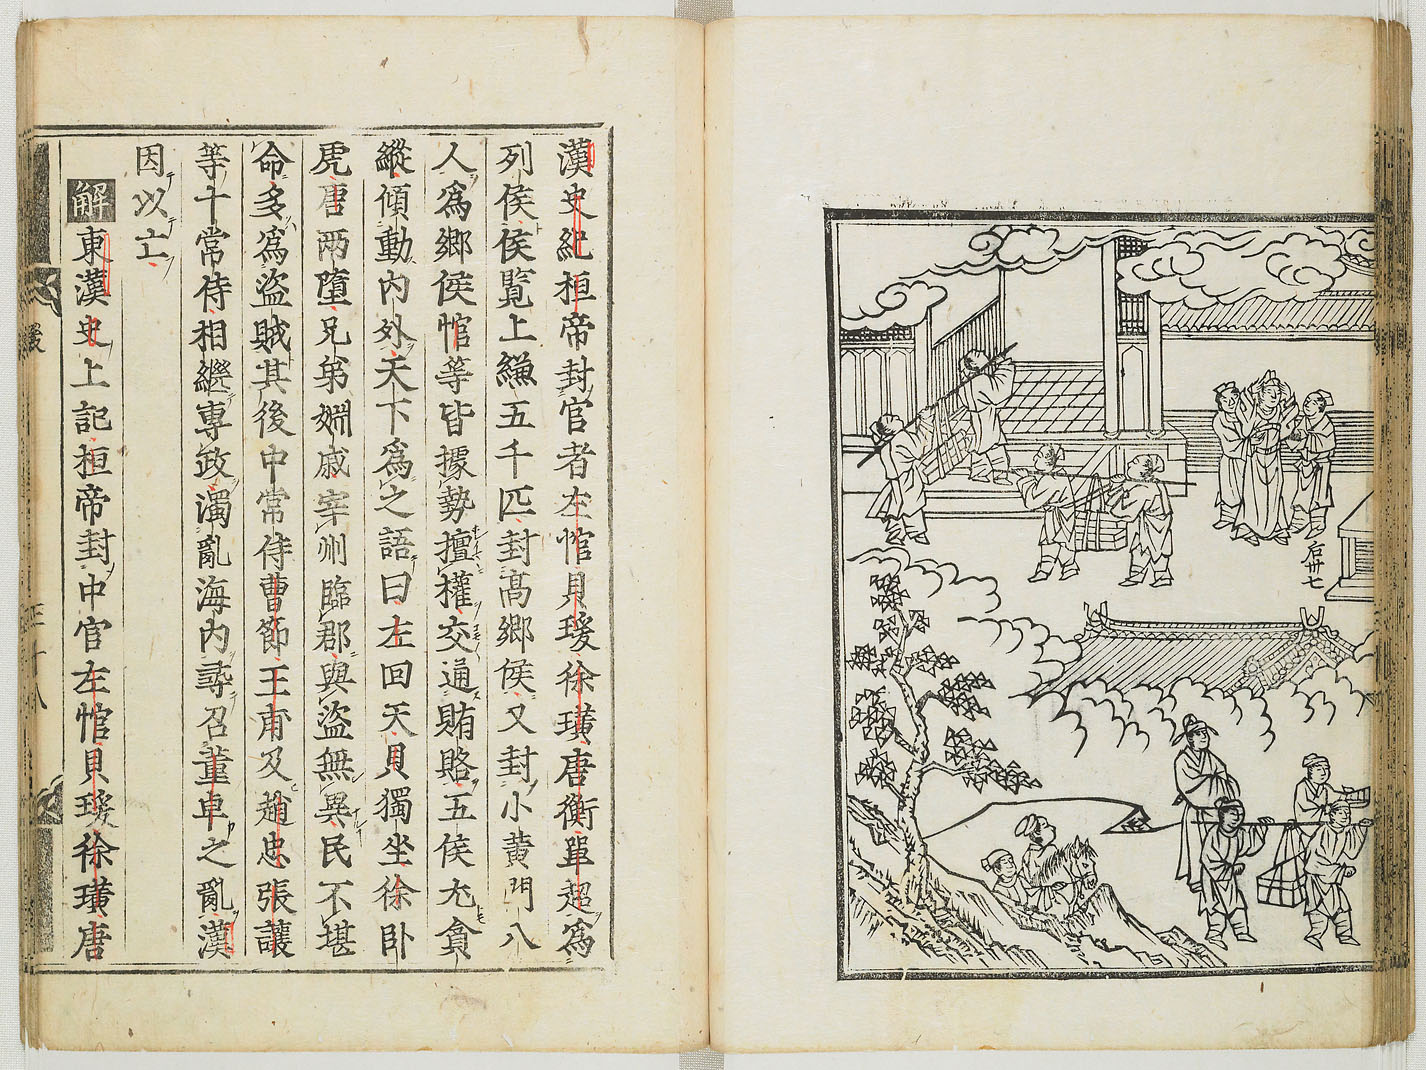 后卅七
漢史紀桓帝封官者左悺具瑗徐璜唐衡單超爲
列侯侯覽上縑五千匹封高鄉侯又封小黃門八
人爲鄉侯悺等皆據勢擅權交通賄賂五侯尤貪
縱傾動內外天下爲之語曰左回天具獨坐徐卧
虎唐兩墮兄弟姻戚宰州臨郡與盜無異民不堪
命多爲盜賊其後中常侍曹節王甫及趙忠張讓
等十常侍相繼專政濁亂海內尋召董卓之亂漢
因以亡
解東漢史上記桓帝封中官左悺具瑗徐璜唐